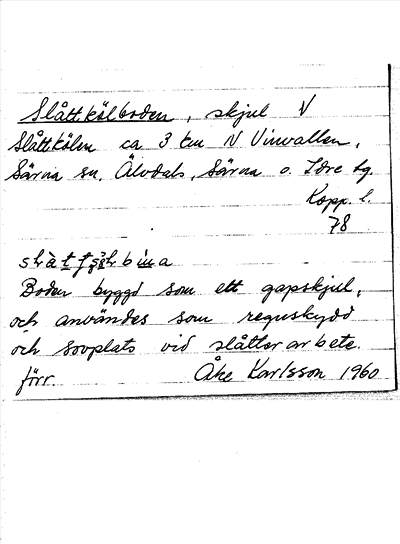 Slåttkölboden, skjul V
Slåttkölen ca 3 km N Vinvallen,
Särna sn, Älvdals, Särna o. Idre tg.
Kopp. l.
78
Boden byggd som ett gapskjul,
och användes som regnskydd
och sovplats vid slåtterarbete.
förr Åke Karlsson 1960